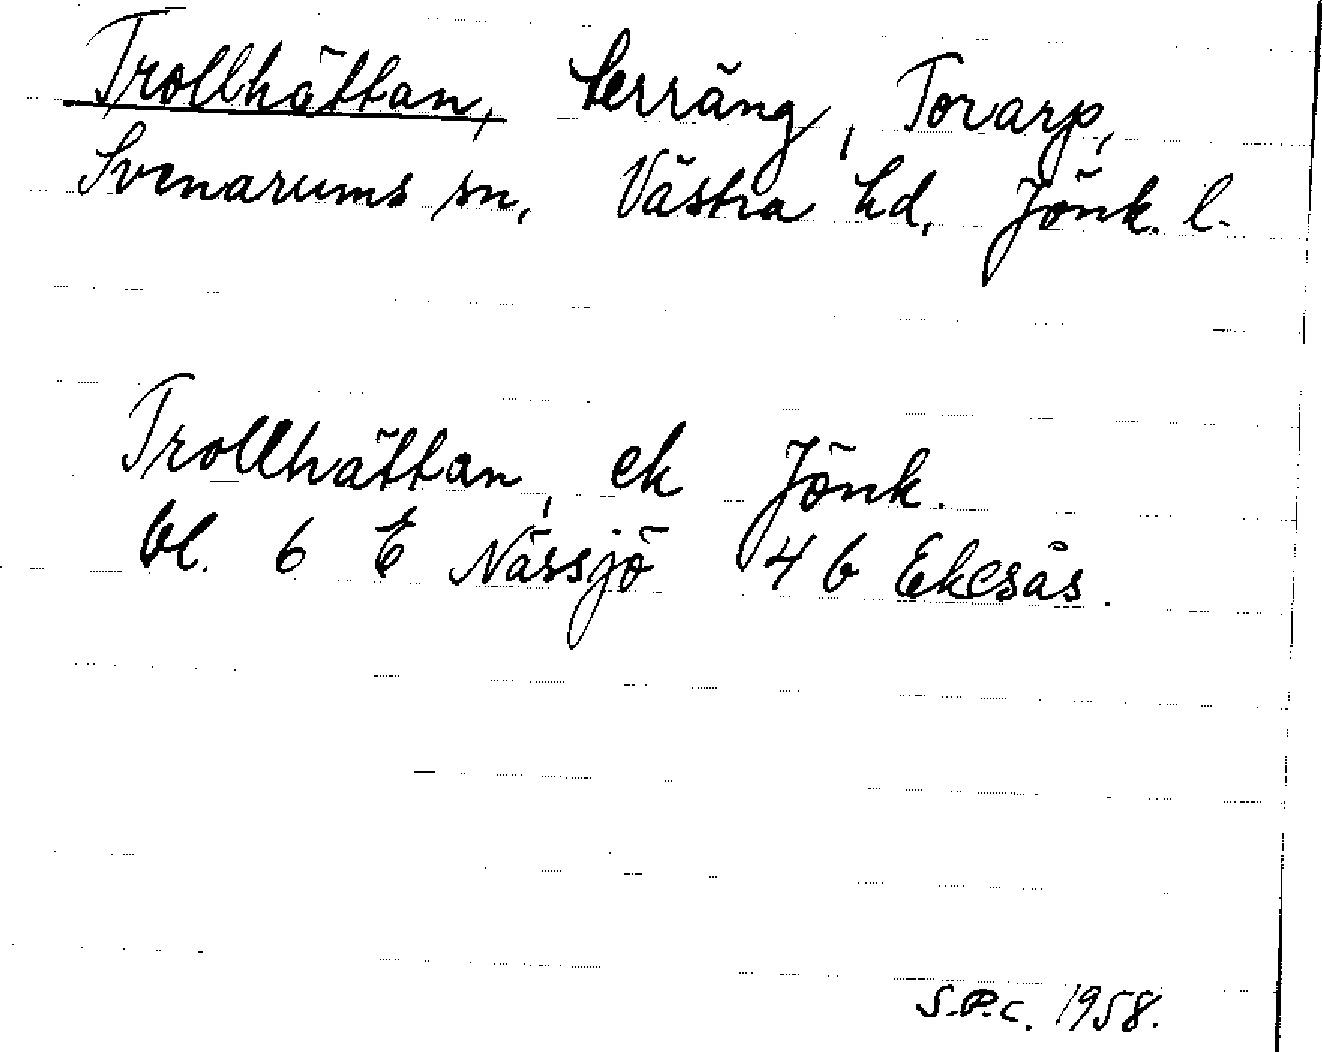 Trollhättan, terräng, Torarp,
Svenarums sn, Västra hd, Jönk. l.
Trollhättan, ek Jönk.
bl. 6 E Nässjö 4 b Ekesås.
S.P.C. 1958.